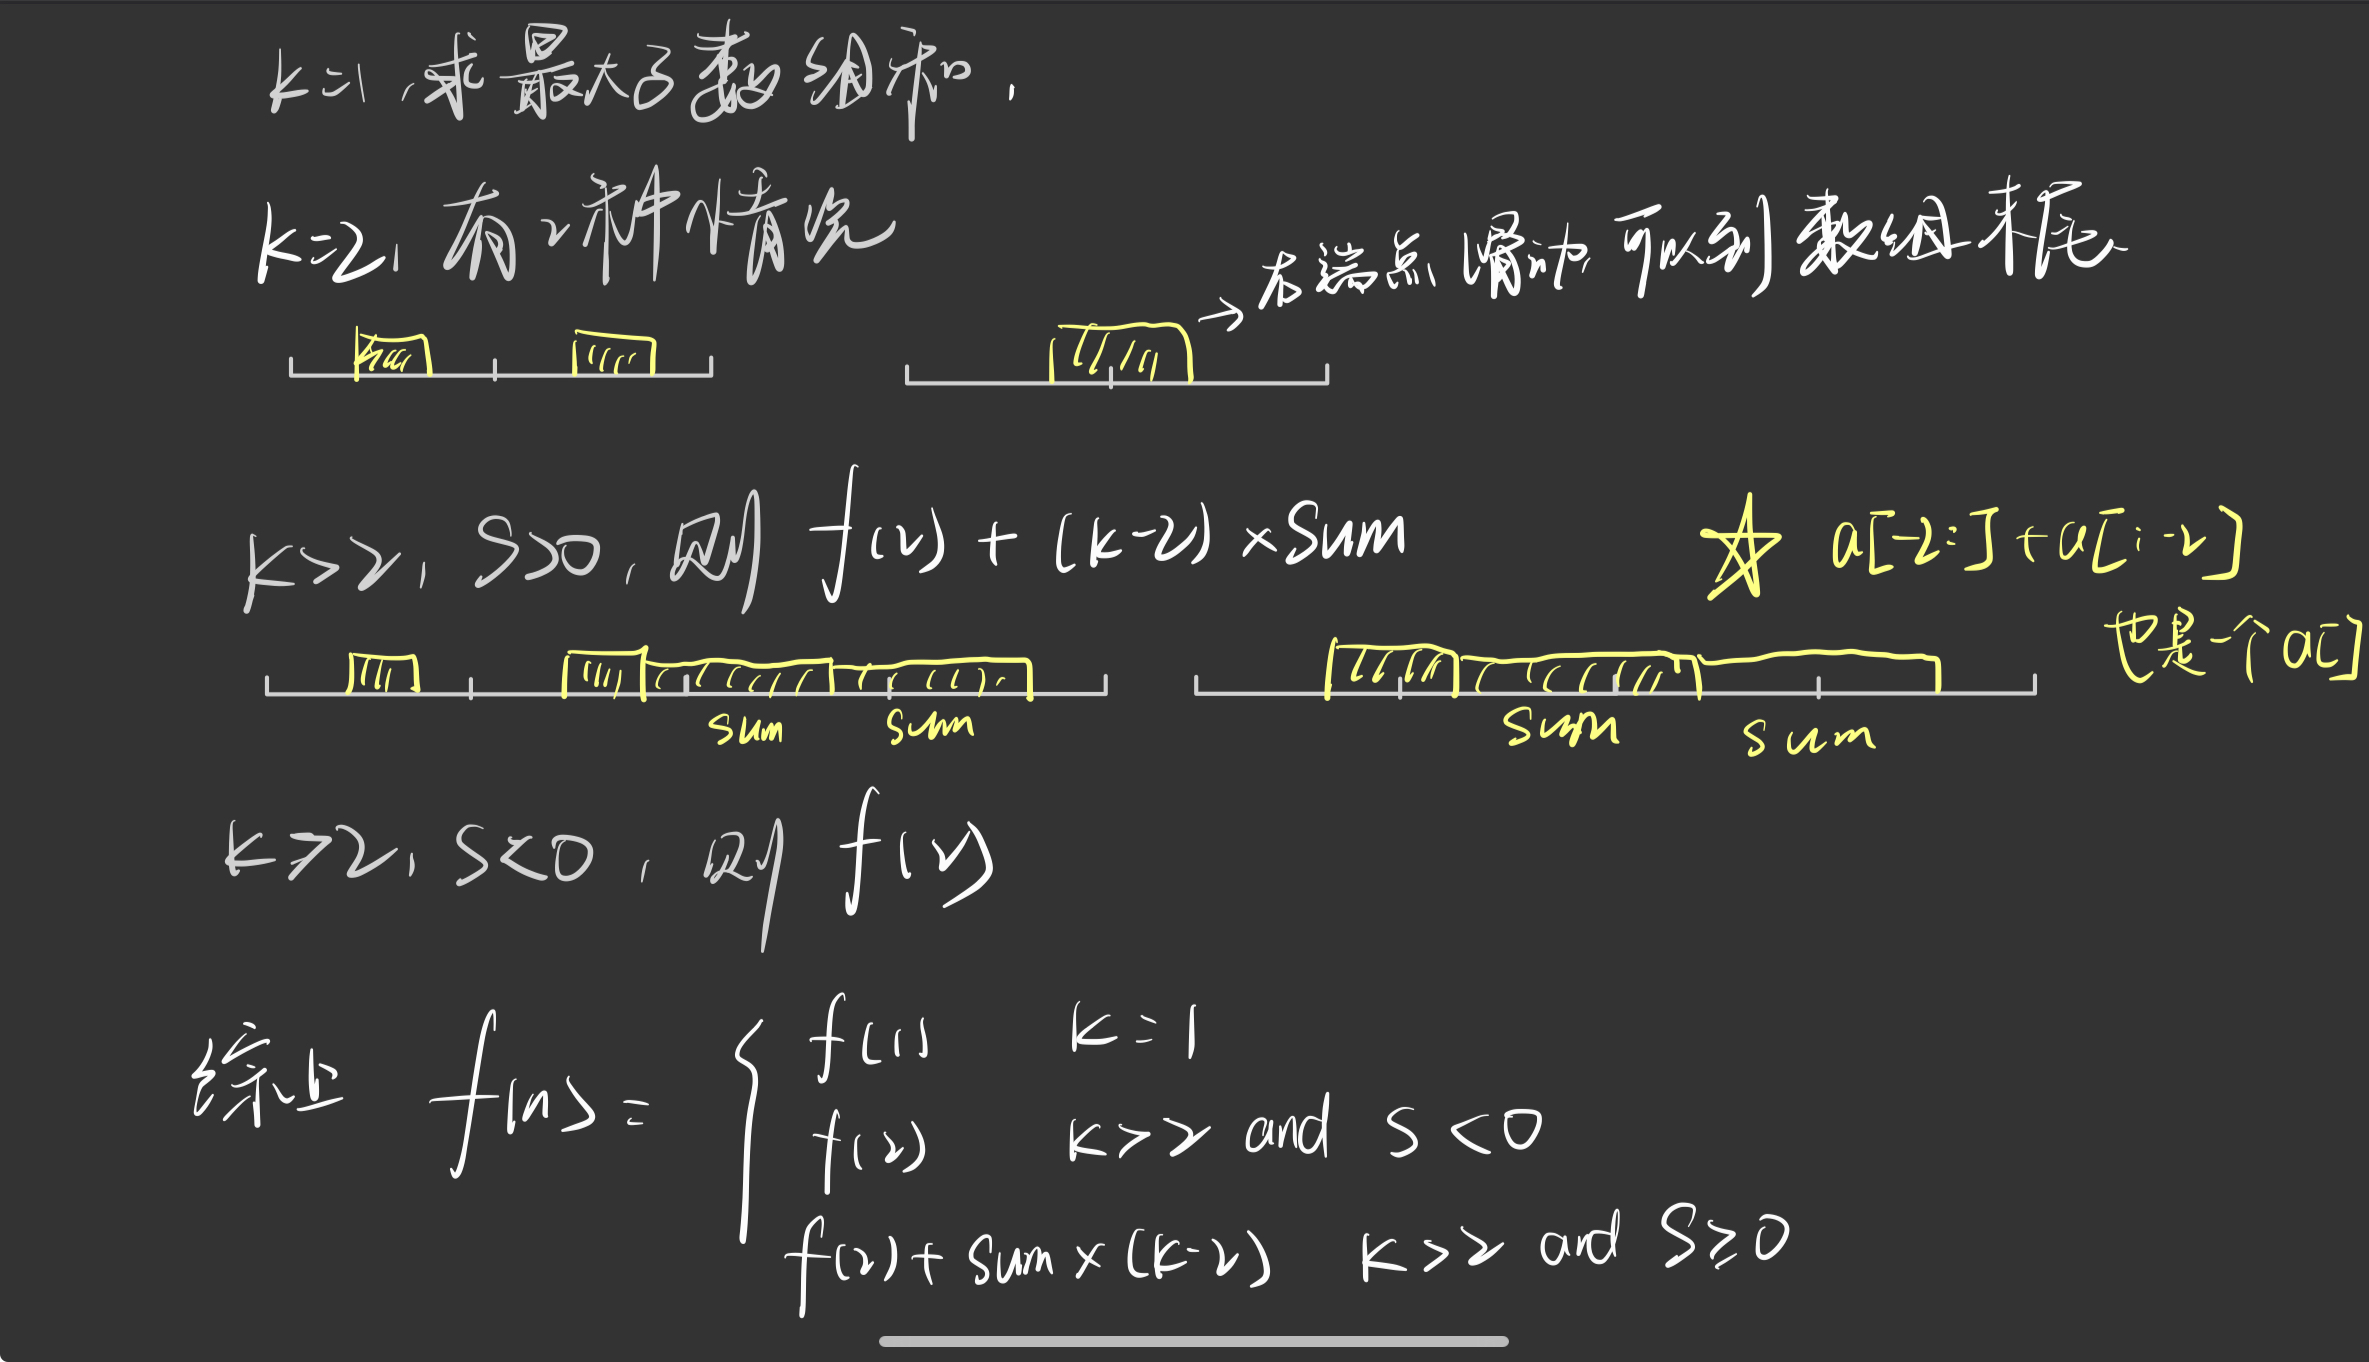 k=1, 求最大子数组和,
k=2, 有2种情况
→ 右端点, 不到数组末尾
k>2, S>0, 则 f(2) + (k-2) × Sum
☆ a[-2:] + a[:-2]
也是个a[]
sum sum
sum sum
k>2, S<0, 则 f(2)
综上 f(n) =
f(1) k=1
f(2) k>2 and S<0
f(2) + sum × (k-2) k>2 and S≥0